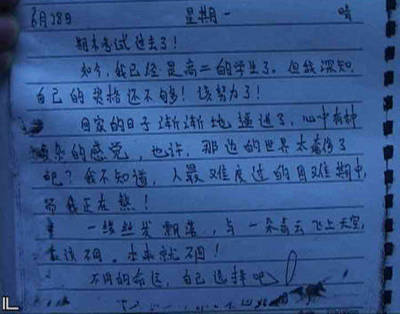 6月28日 星期一 晴
期末考试过去了!
如今,我已经是高二的学生了。但我深知,
自己的资格还不够!该努力了!
回家的日子渐渐地逼近了,心中有种
杂的感觉,也许,那边的世界太
吧?我不知道,人最难度过的困难期中,
而我正在熬!
一缕丝发飘落,与一朵云飞上天空,
不同。本来就不同!
不同的命运,自己选择吧